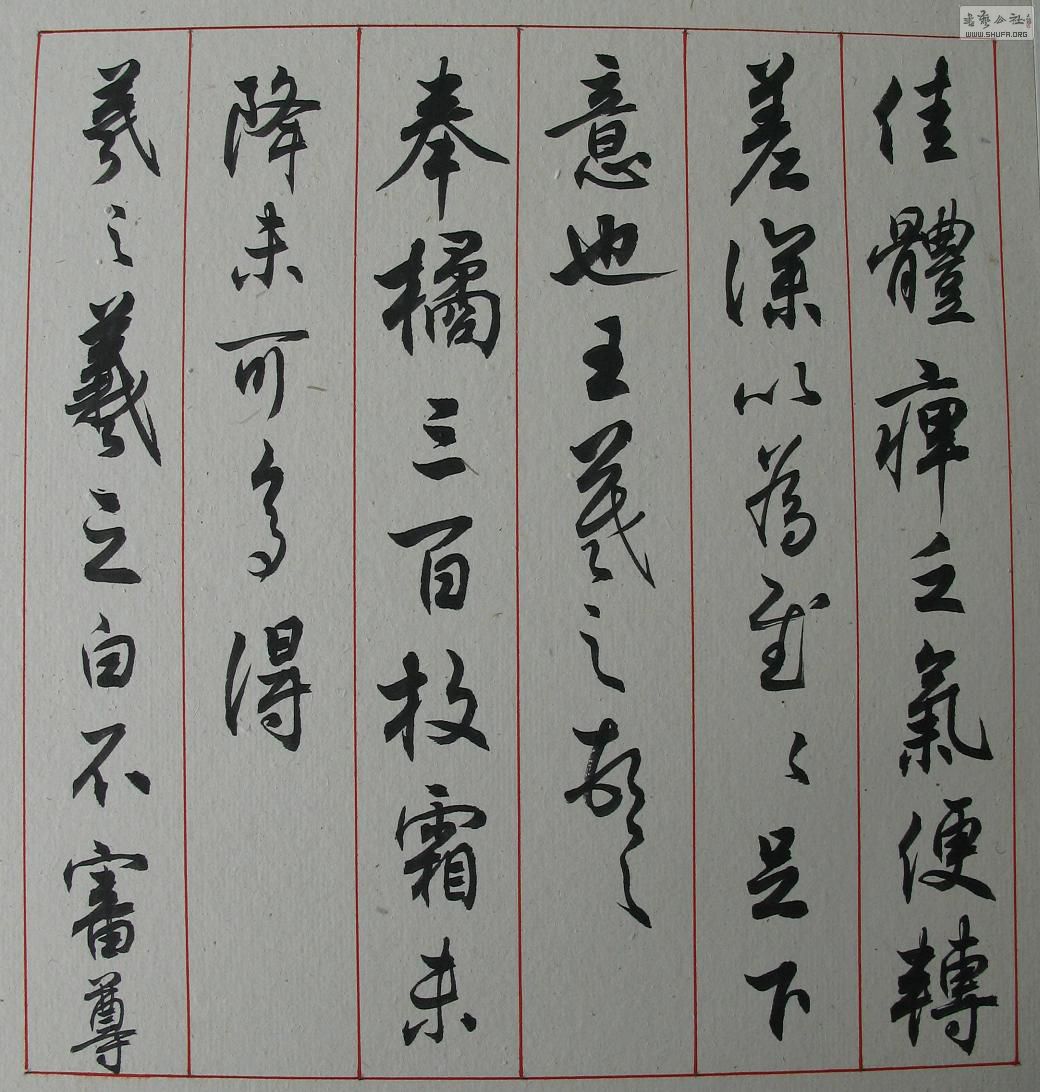 佳體痺乏氣便轉
差深以爲慰々足下
意也王羲之頓
奉橘三百枚霜未
降未可多得
羲之羲之白不審尊
书艺公社
WWW.SHUFA.ORG